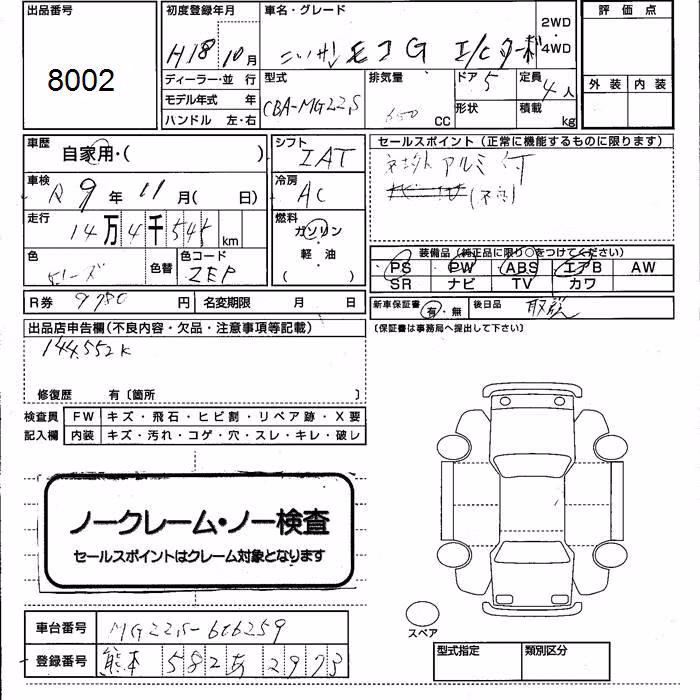 出品番号
8002
初度登録年月
H18 10月
車名・グレード
ニッサン モコG I/Cターボ
2WD
4WD
評価点
外装 内装
ディーラー・並行
モデル年式 年
ハンドル 左・右
型式
CBA-MG22S
排気量
650 CC
ドア 5
形状
定員 4人
積載 kg
車歴
自家用・( )
車検
R 9年 11月( 日)
走行
14万4千545km
色
色替
色コード
ZEP
R券 9780円
名変期限 月 日
シフト
IAT
冷房
AC
燃料
ガソリン
・
軽油
( )
セールスポイント(正常に機能するものに限ります)
社外アルミ付
装備品(純正品に限り○をつけてください)
PS PW ABS エアB AW
SR ナビ TV カワ
新車保証書 有・無
後日品 取説
(保証書は事務局へ提出して下さい)
出品店申告欄(不良内容・欠品・注意事項等記載)
144,552K
修復歴 有〔箇所 〕
検査員
記入欄
FW キズ・飛石・ヒビ割・リペア跡・X要
内装 キズ・汚れ・コゲ・穴・スレ・キレ・破レ
ノークレーム・ノー検査
セールスポイントはクレーム対象となります
車台番号 MG22S-606259
登録番号 熊本 582 あ 2973
スペア
型式指定 類別区分